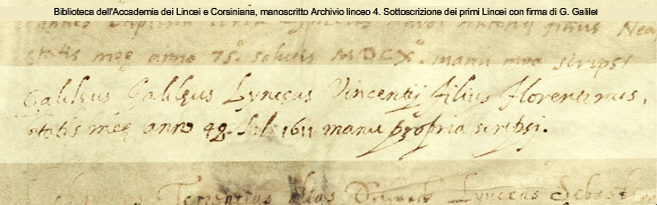 Biblioteca dell'Accademia dei Lincei e Corsiniana, manoscritto Archivio linceo 4. Sottoscrizione dei primi Lincei con firma di G. Galilei
filius Nea
ętatis meę anno 75º. salutis MDCXº. manu mea scripsi
Galileus Galileus Lynceus Vincentij filius Florentinus,
ętatis meę anno 48. Sal: 1611 manu propria scripsi.
Terentius alias Lynceus